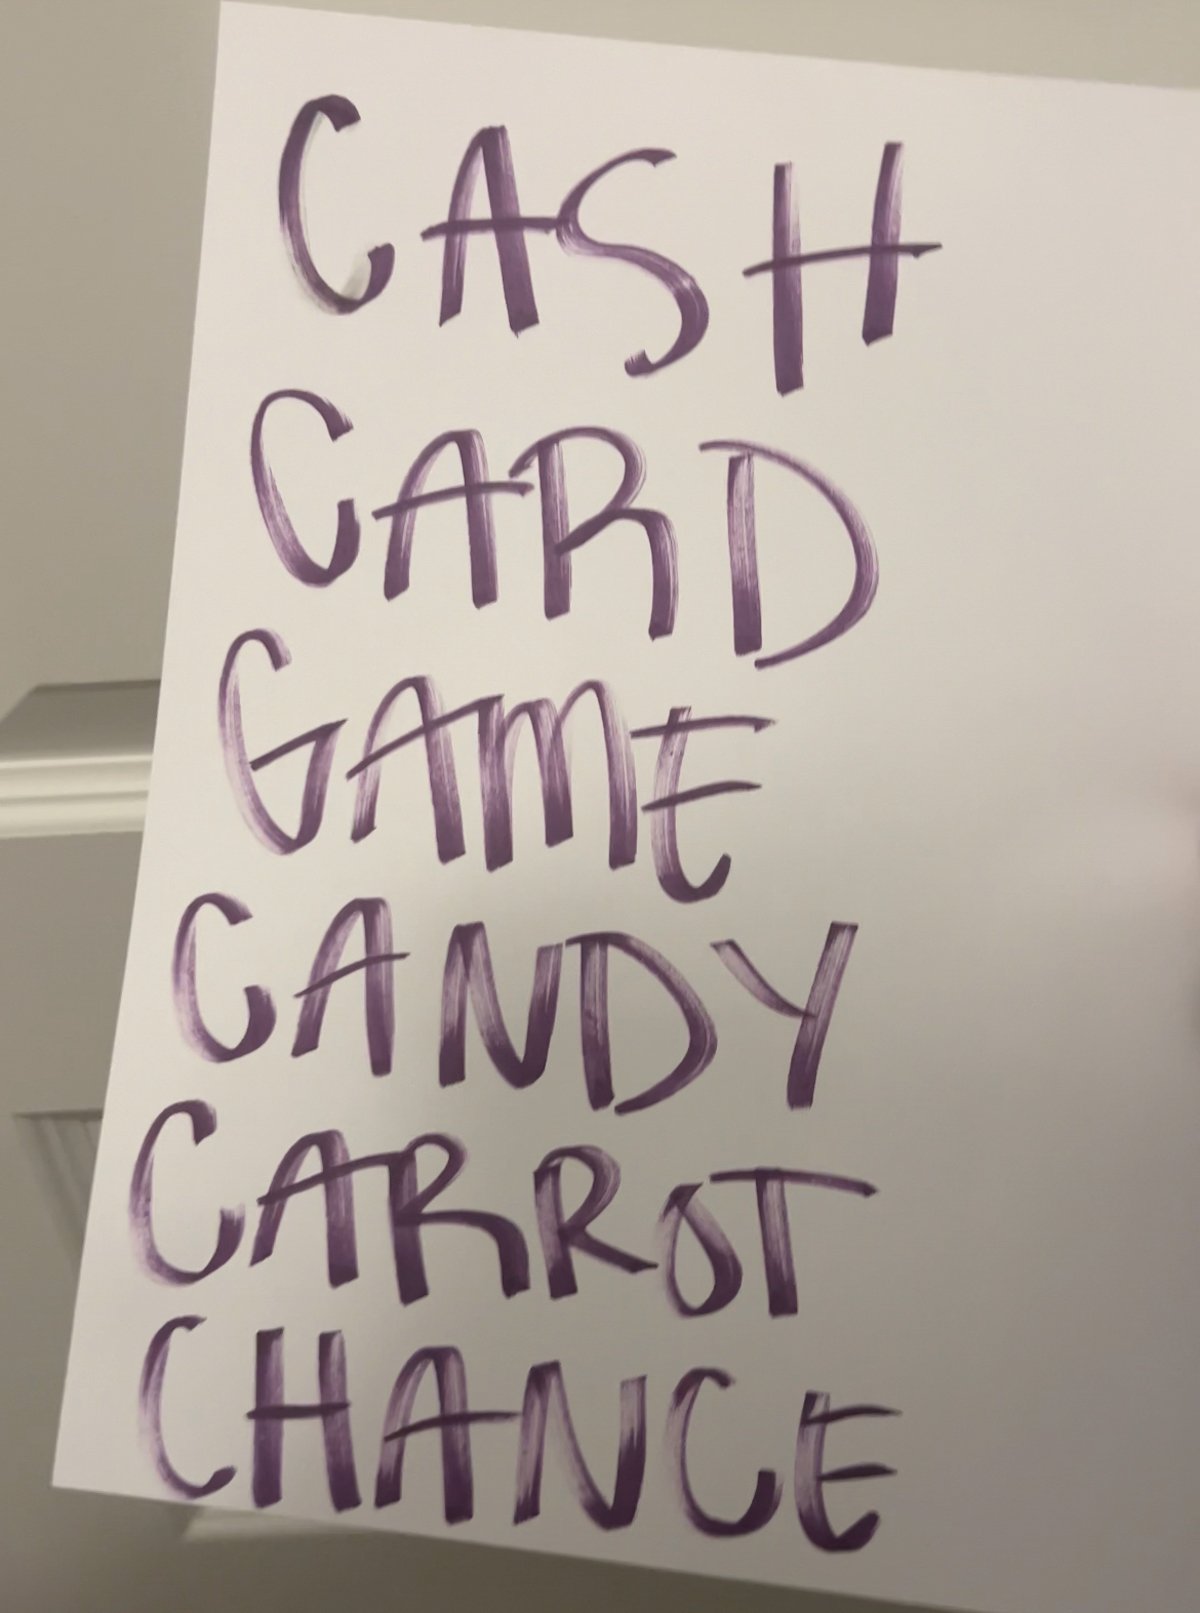 CASH
CARD
GAME
CANDY
CARROT
CHANCE